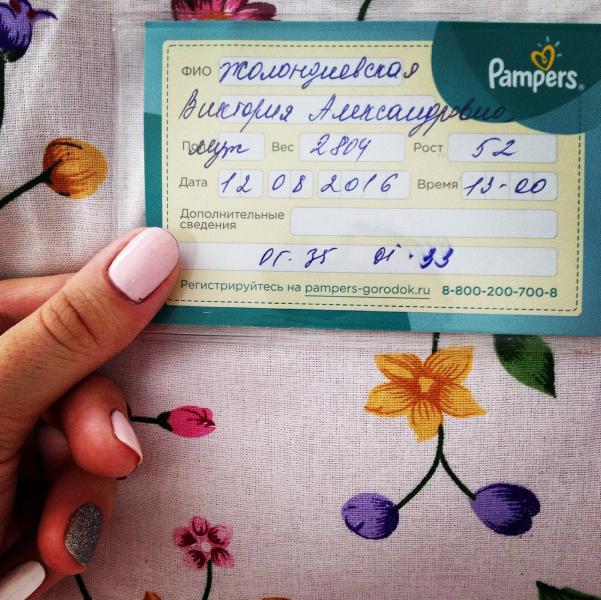 ФИО Жолондиевская
Pampers®
Виктория Александровна
Пол муж Вес 2804 Рост 52
Дата 12 08 2016 Время 13-00
Дополнительные
сведения
ОГ. 35 ОГ. 33
Регистрируйтесь на pampers-gorodok.ru 8-800-200-700-8